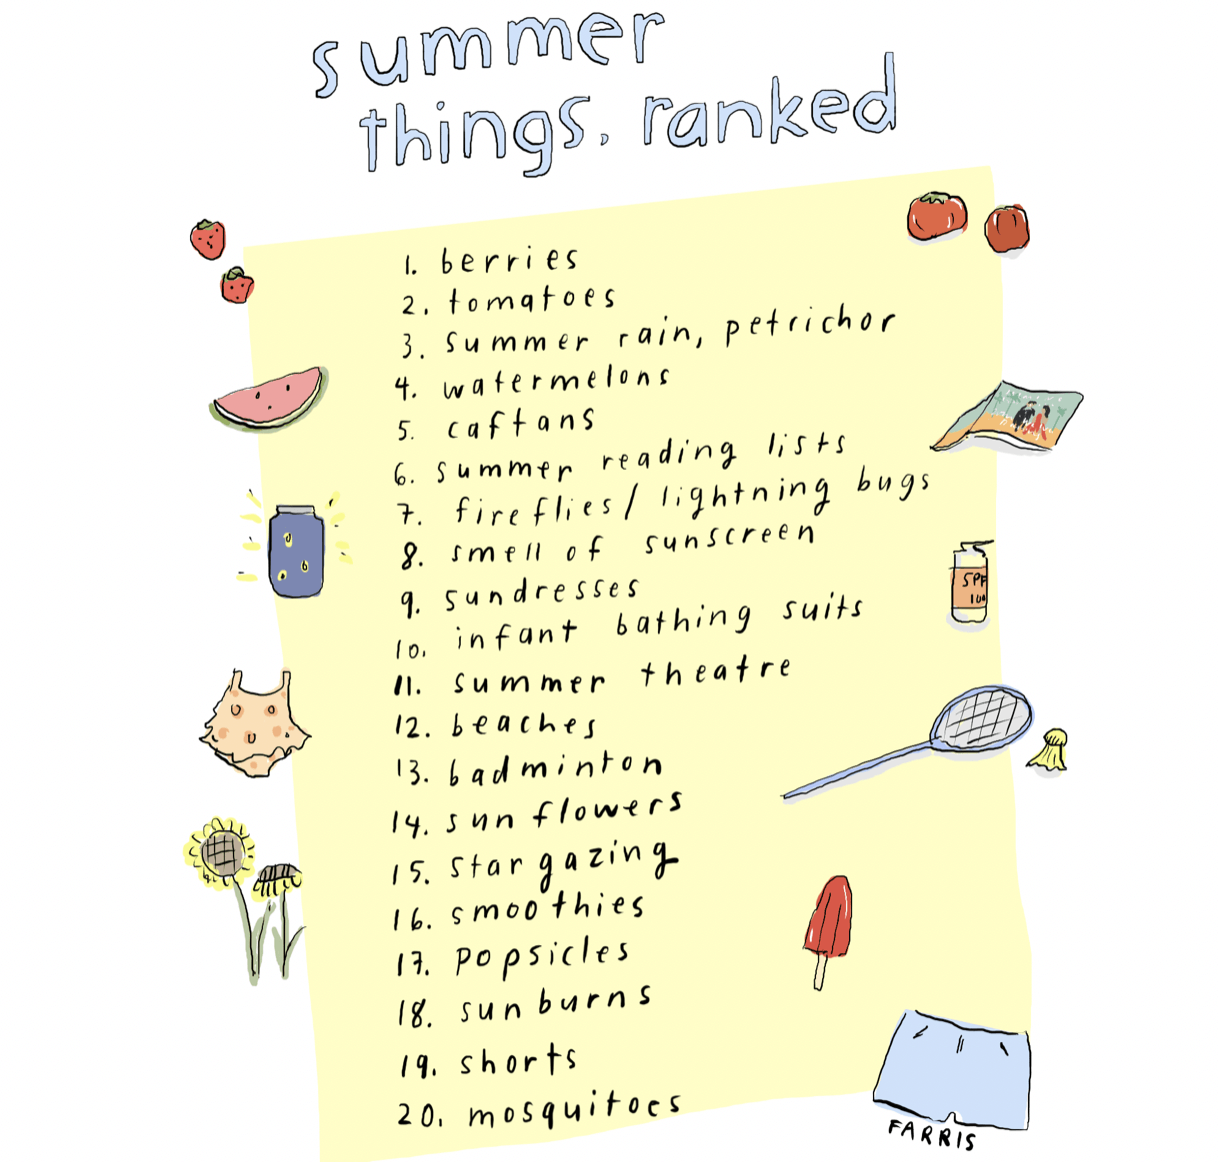 summer
things, ranked
1. berries
2. tomatoes
3. summer rain, petrichor
4. watermelons
5. caftans
6. summer reading lists
7. fireflies/lightning bugs
8. smell of sunscreen
9. sundresses
10. infant bathing suits
11. summer theatre
12. beaches
13. badminton
14. sunflowers
15. stargazing
16. smoothies
17. popsicles
18. sunburns
19. shorts
20. mosquitoes
SPF
100
FARRIS